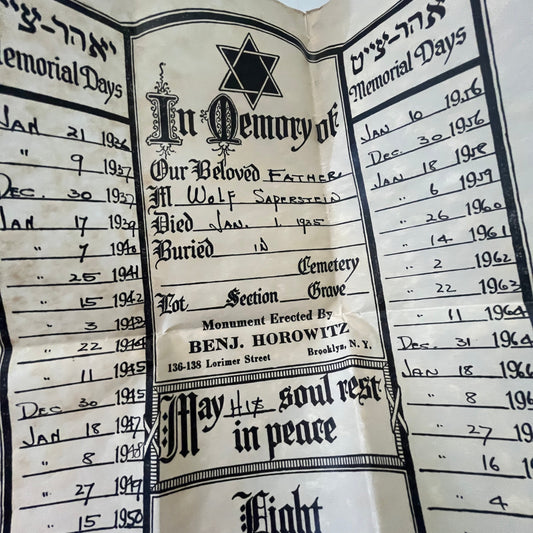 יאהר-צייט
Memorial Days
JAN 21 1936
" 9 1937
DEC. 30 1937
JAN 17 1939
" 7 1940
" 25 1941
" 15 1942
" 3 1943
" 22 1944
" 11 1945
DEC 30 1945
JAN 18 1947
" 8 1948
" 27 1949
" 15 1950
In Memory of
Our Beloved FATHER
M WOLF SAPERSTEIN
Died JAN. 1. 1935
Buried in
Cemetery
Lot Section Grave
Monument Erected By
BENJ. HOROWITZ
136-138 Lorimer Street Brooklyn, N. Y.
May HIS soul rest
in peace
Eight
יאהר-צייט
Memorial Days
JAN 10 1956
DEC. 30 1956
JAN 18 1958
" 6 1959
" 26 1960
" 14 1961
" 2 1962
" 22 1963
" 11 1964
DEC. 31 1964
JAN 18 1966
" 8 196
" 27 19
" 16 1
" 4